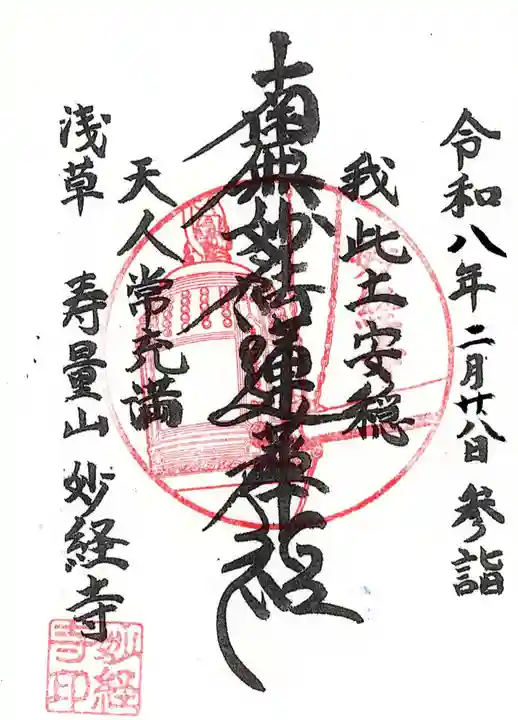 令和八年二月廿八日 参詣
我此土安穏
南無妙法蓮華経
天人常充満
浅草 寿量山 妙経寺
妙経
寺印